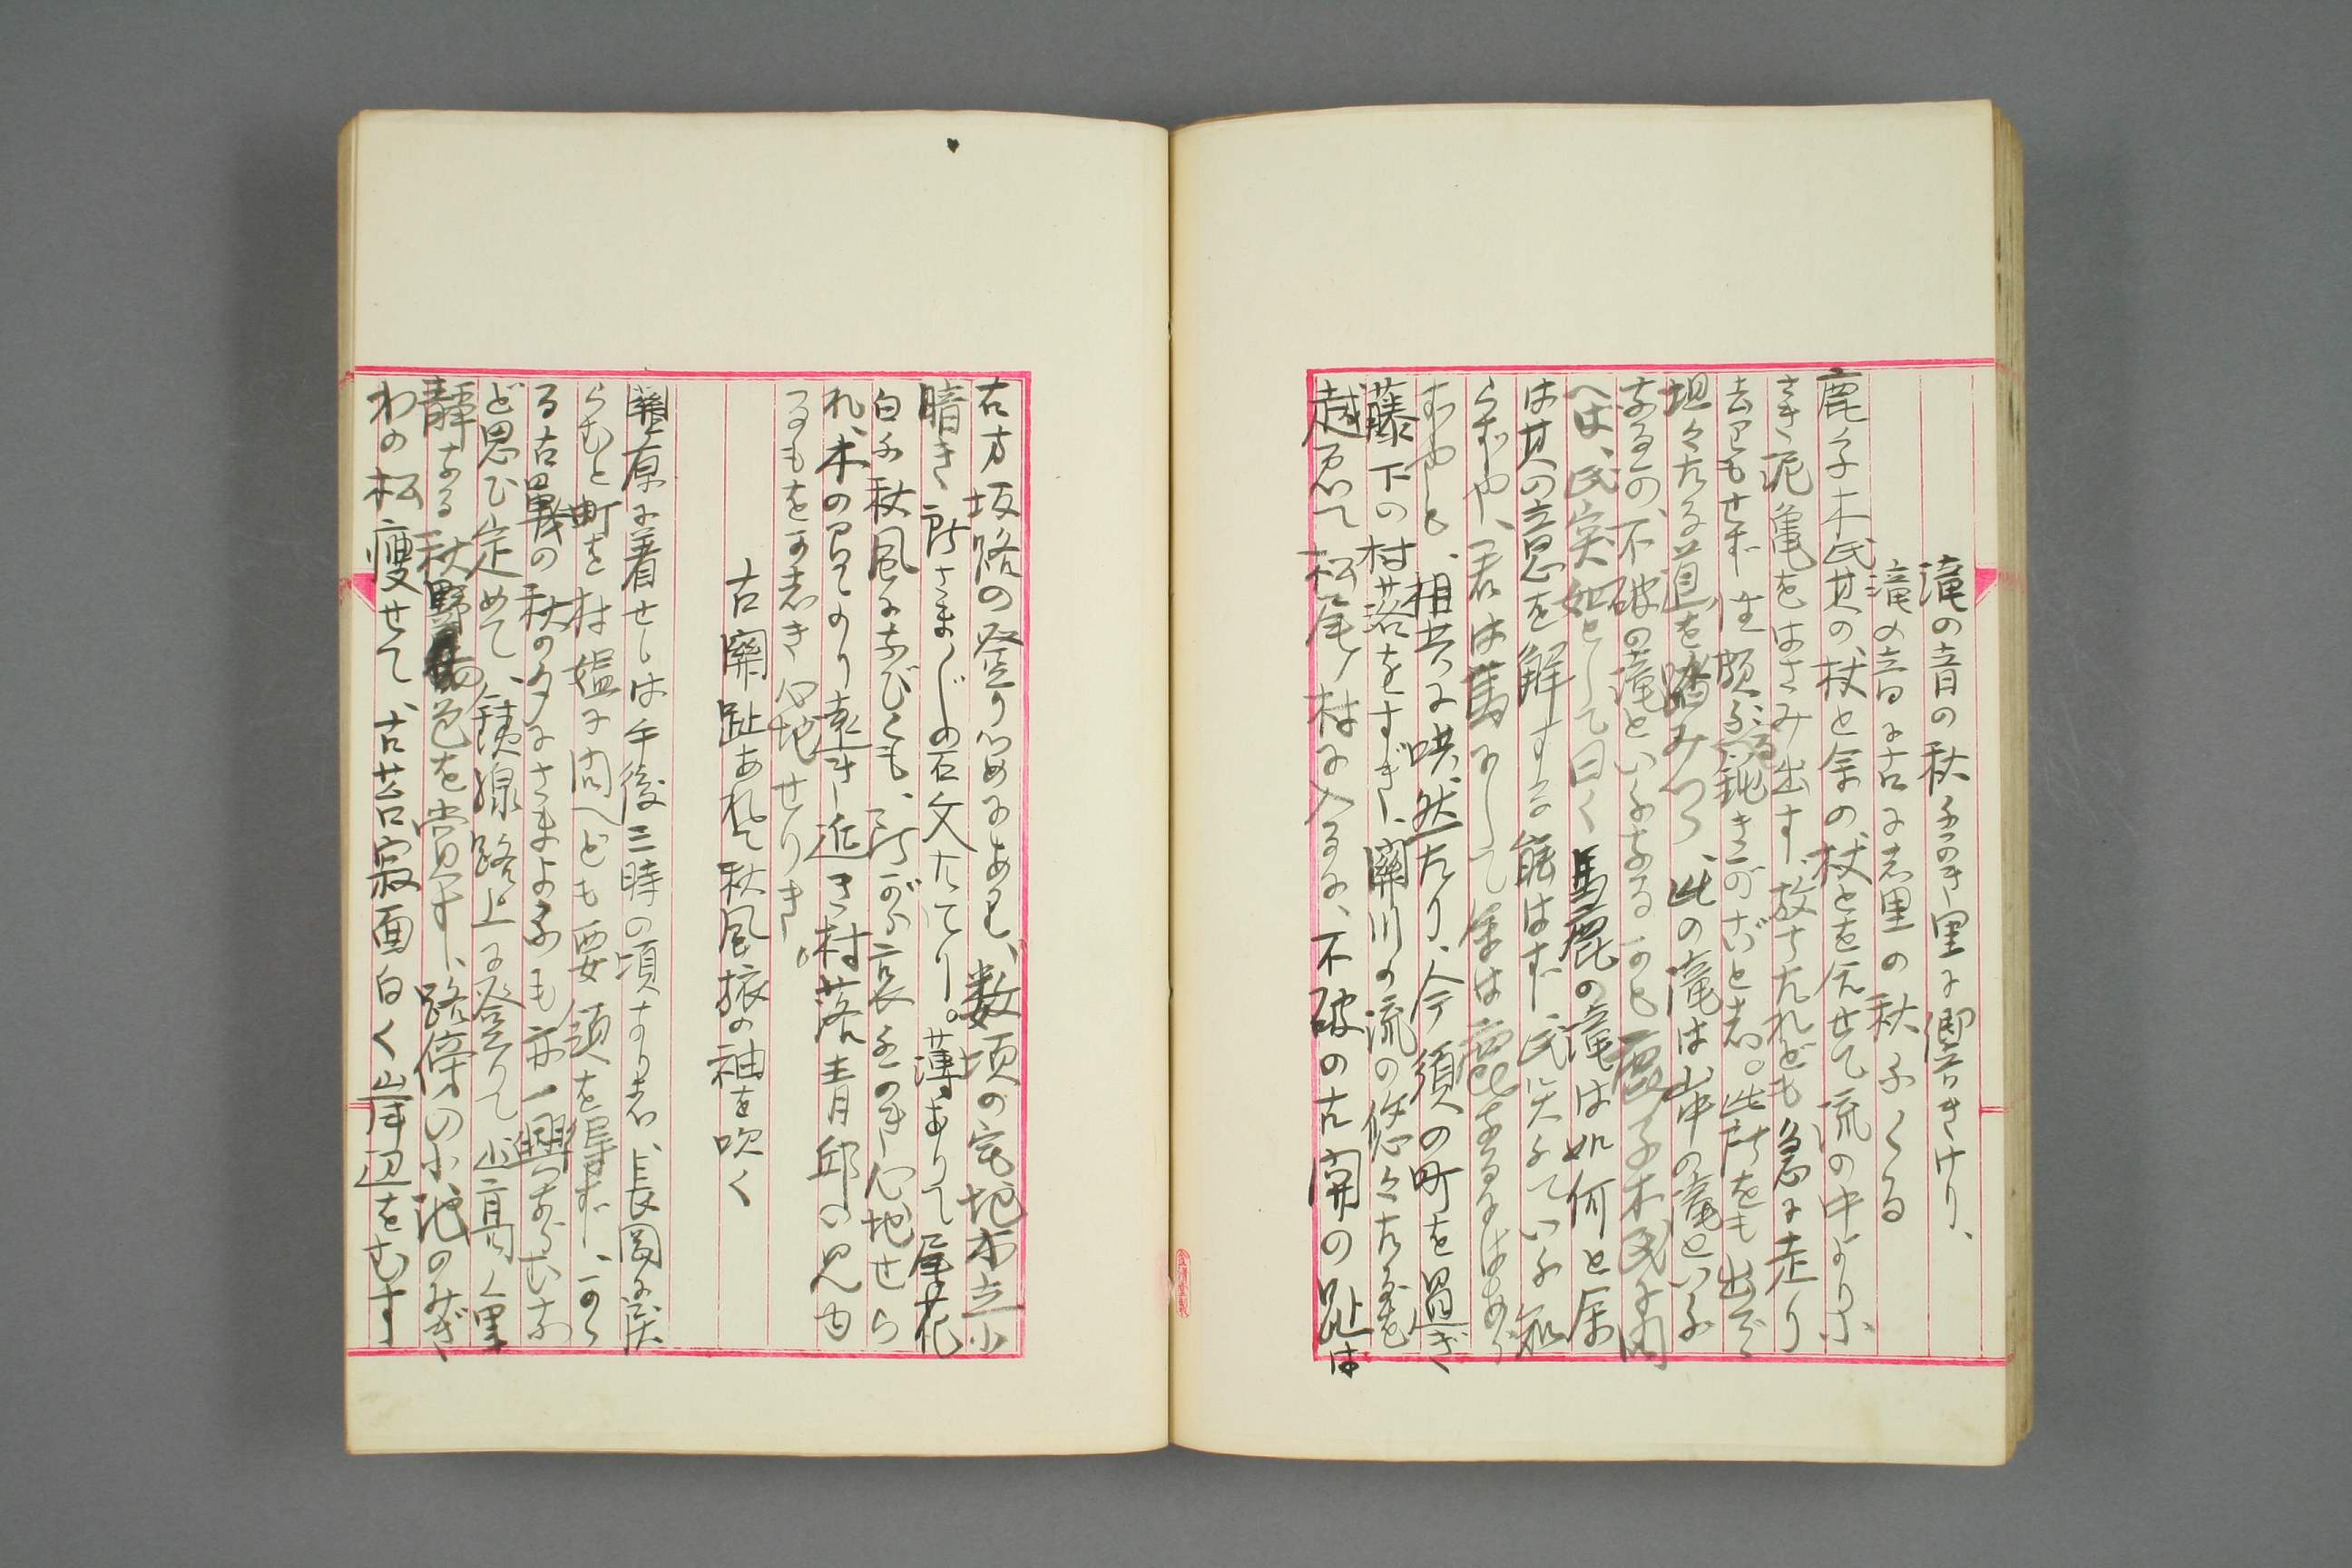 滝の音の秋ふかき里に響きけり、
滝の音に古に志里の秋ふくる
鹿子木氏其の、杖と余の杖とを合せて流の中より小
さき泥亀をはさみ出す放ちたれども急に走り
去りもせず性頗ぶる鈍きがごと志。此所をも出で
坦々たる道を踏みつつ、此の滝は山中の滝といふ
なるの、不破の滝といふなるかと鹿子木氏に問
へば、氏突如として曰く馬鹿の滝は如何と余
は其の意を解する能はず、氏笑ふていふ知
らずや、君は馬にして余は鹿なるにはあら
ずやと、相共に哄然たり、今須の町を過ぎ
藤下の村落をすぎ、關川の流の悠々たるを
越えて松尾村に入るに、不破の古関の趾は
右方坂路の登り初めにあり、数項の宅地木立小
暗き所さまじの石文たてり。薄ありて尾花
白ふ秋風になびくも、所がら哀れのき心地せら
れ、木の間より遠き近き村落青邱の見ゆ
るもをか志き心地せりき。
古關趾あれて秋風旅の袖を吹く
關ケ原に着せしは午後三時の頃なり志、長岡に戻
らむと町を村媼に問へども要領を得ず、かか
る古戰の秋の夕にさまよふも亦一興ならむな
ど思ひ定めて、鐵線路上に登りて山高く里
静なる秋野の色を賞す、路傍の小池のみぎ
わの松痩せて、古苔寂面白く岸辺をむす